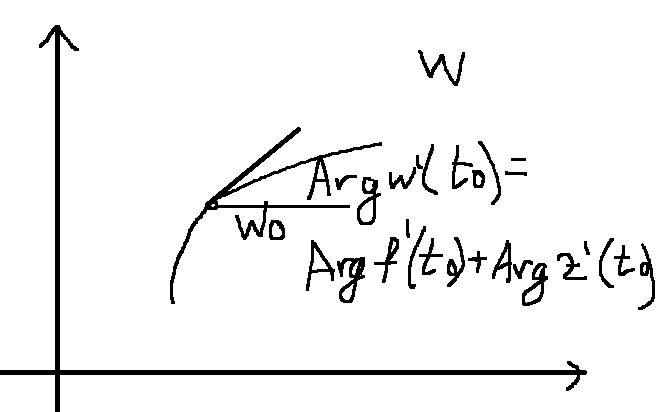 W
Arg w'(t0)=
W0
Arg f'(t0)+Arg z'(t0)